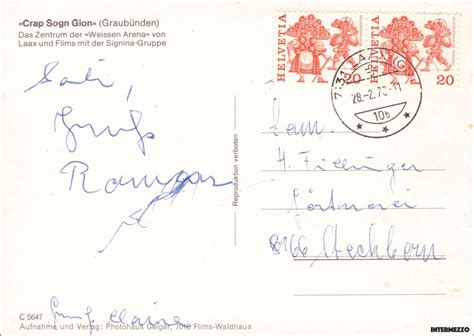 «Crap Sogn Gion» (Graubünden)
Das Zentrum der «Weissen Arena» von
Laax und Flims mit der Signina-Gruppe
Gruss
HELVETIA
20
HELVETIA
20
28.-2.78.-11
10b
Reproduktion verboten
Fam.
H. Fillinger
Gärtnerei
8266 Steckborn
C 5647
Gruss Claire
Aufnahme und Verlag: Photohaus Geiger, 7018 Flims-Waldhaus
INTERMEZZO